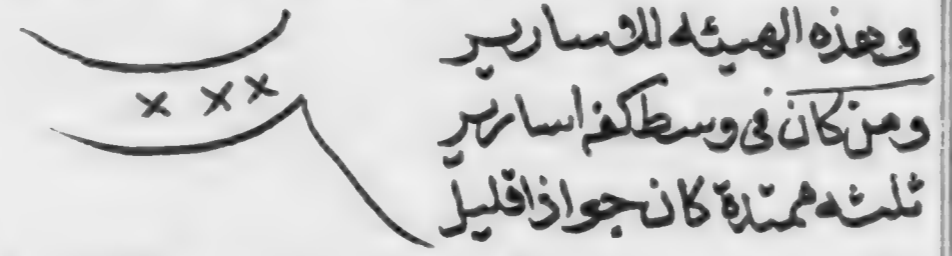 وهذه الهيئه للاسارير
ومن كان فى وسط كفه اسارير
ثلثه ممتدة كان جواذا قليل